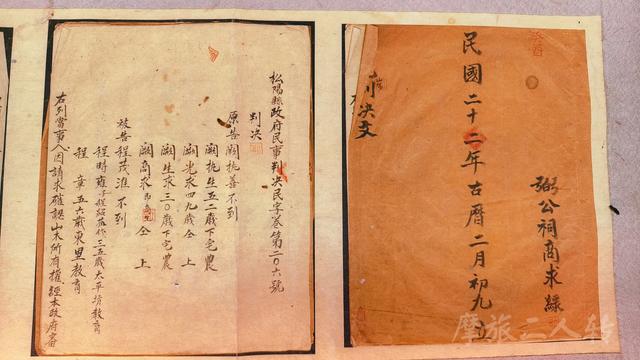 弼公祠商求錄
民國二十二年古曆二月初九立
判決文
松陽縣政府民事判決民字卷第二〇六號
判決
原告闕執善不到
闕執生五二歲下宅農
闕光求四九歲仝上
闕生求三〇歲下宅農
闕商求 仝上
被告程茂淮不到
程時雍 三五歲大平墳教育
程章五六歲東里教育
右列當事人因請求確認山木所有權經本政府審
摩旅二人转